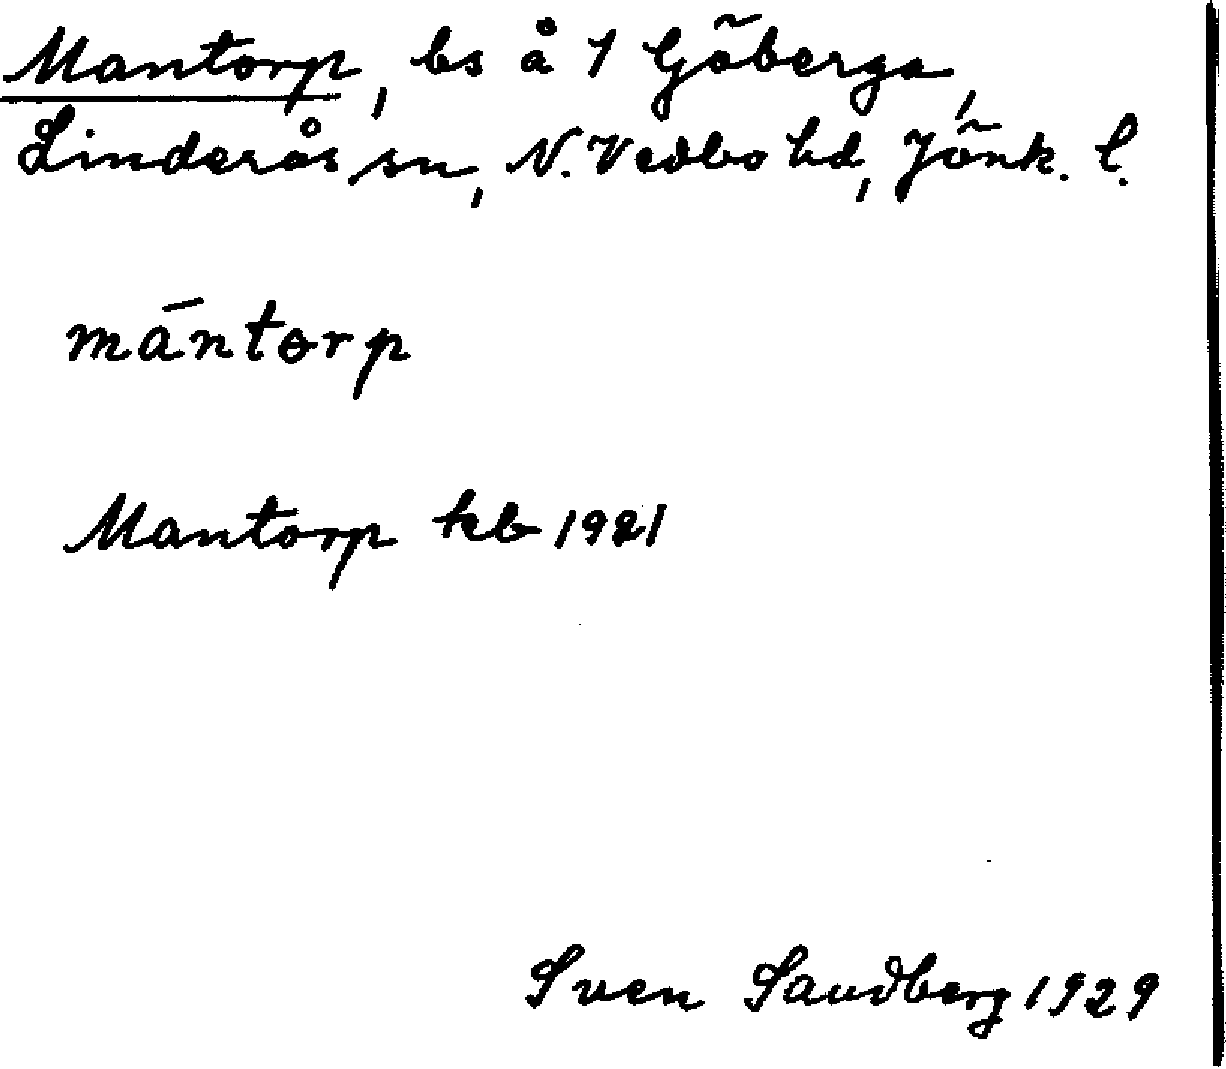 Mantorp, bs å 1 Göberga,
Linderås sn, N. Vedbo hd, Jönk. l.
mántɵrp
Mantorp kb 1921
Sven Sandberg 1929